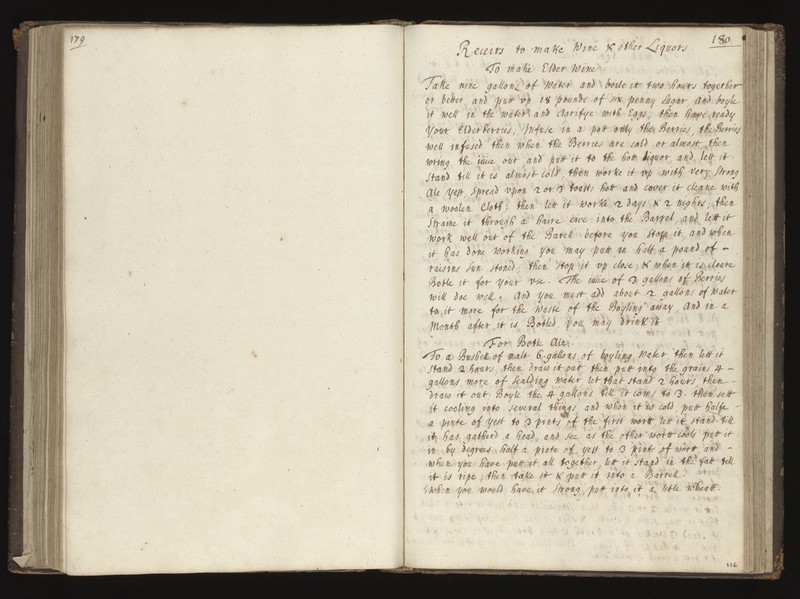 179
180
Receits to make Wine & other Liquors
To make Elder Wine
Take nine gallons of Water and boile it two hours together
or better and putt vp 18 pounds of six penny sugar and boyle
it well in the water and clarifye with Eggs, then have ready
Your Elderberries, Infuse in a pott only the Berries, the Berries
well infused then when the Berries are cold or almost then
wring the iuice out and putt it to the hott liquor and lett it
Stand till it is almost cold, then worke it vp with very strong
Ale yest, spread vpon 2 or 3 toasts hott and cover it cleane with
a woolen Cloth; then lett it worke 2 days & 2 nights, then
Straine it through a haire cive into the Barrel, and lett it
work well out of the Barell before you stop it and when
it has done working you may putt in half a pound of -
raisins sun stoned, then stop it vp close, & when it is cleare
Botle it for your vse. The iuice of 3 gallons of Berries
will doe well. And you must add about 2 gallons of Water
to it more for the waste of the Boyling away, And in a
Month after it is Botled you may drink it
For Botle Ale
To a Bushell of malt 6 gallons of boyling Water then lett it
stand 2 hours, then draw it out then putt into the grains 4 -
gallons more of scalding water let that stand 2 hours, then -
draw it out Boyle the 4 gallons till it come to 3. then sett
it cooling into several things and when it is cold putt halfe -
a pinte of yest to 3 pints of the first wortt lett it stand till
it has gatherd a head, and see as the other wortt cools putt it
in by degrees half a pinte of yest to 3 pint of wortt and -
when you have putt it all together lett it stand in the fatt till
it is ripe, then take it & putt it into a Barrell.
when you would have it strong putt into it a little wheatt.
116